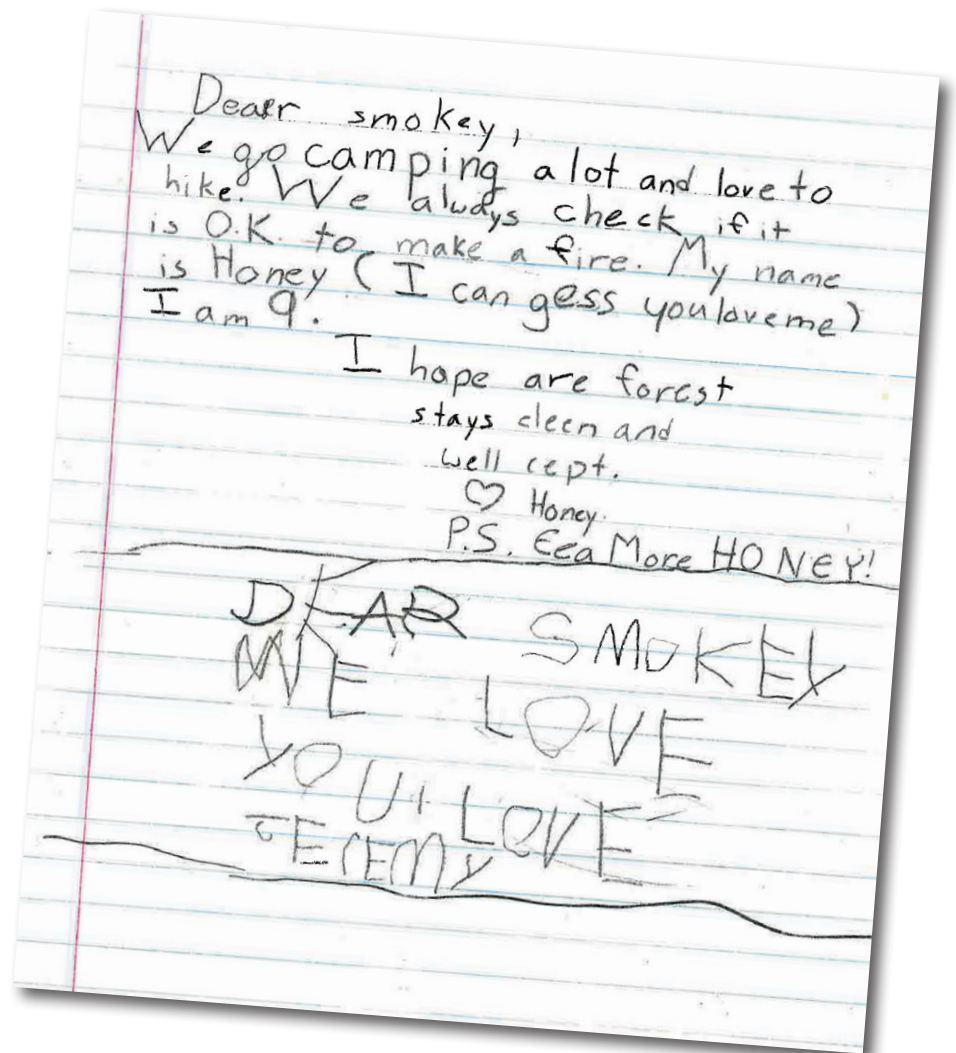 Dearr smokey,
We go camping a lot and love to
hike. We always check if it
is O.K. to make a fire. My name
is Honey (I can gess you love me)
I am 9.
I hope are forest
stays cleen and
well cept.
♡ Honey.
P.S. Eea More HONEY!
DEAR SMOKEY
WE LOVE
YOU. LOVE
JEREMY